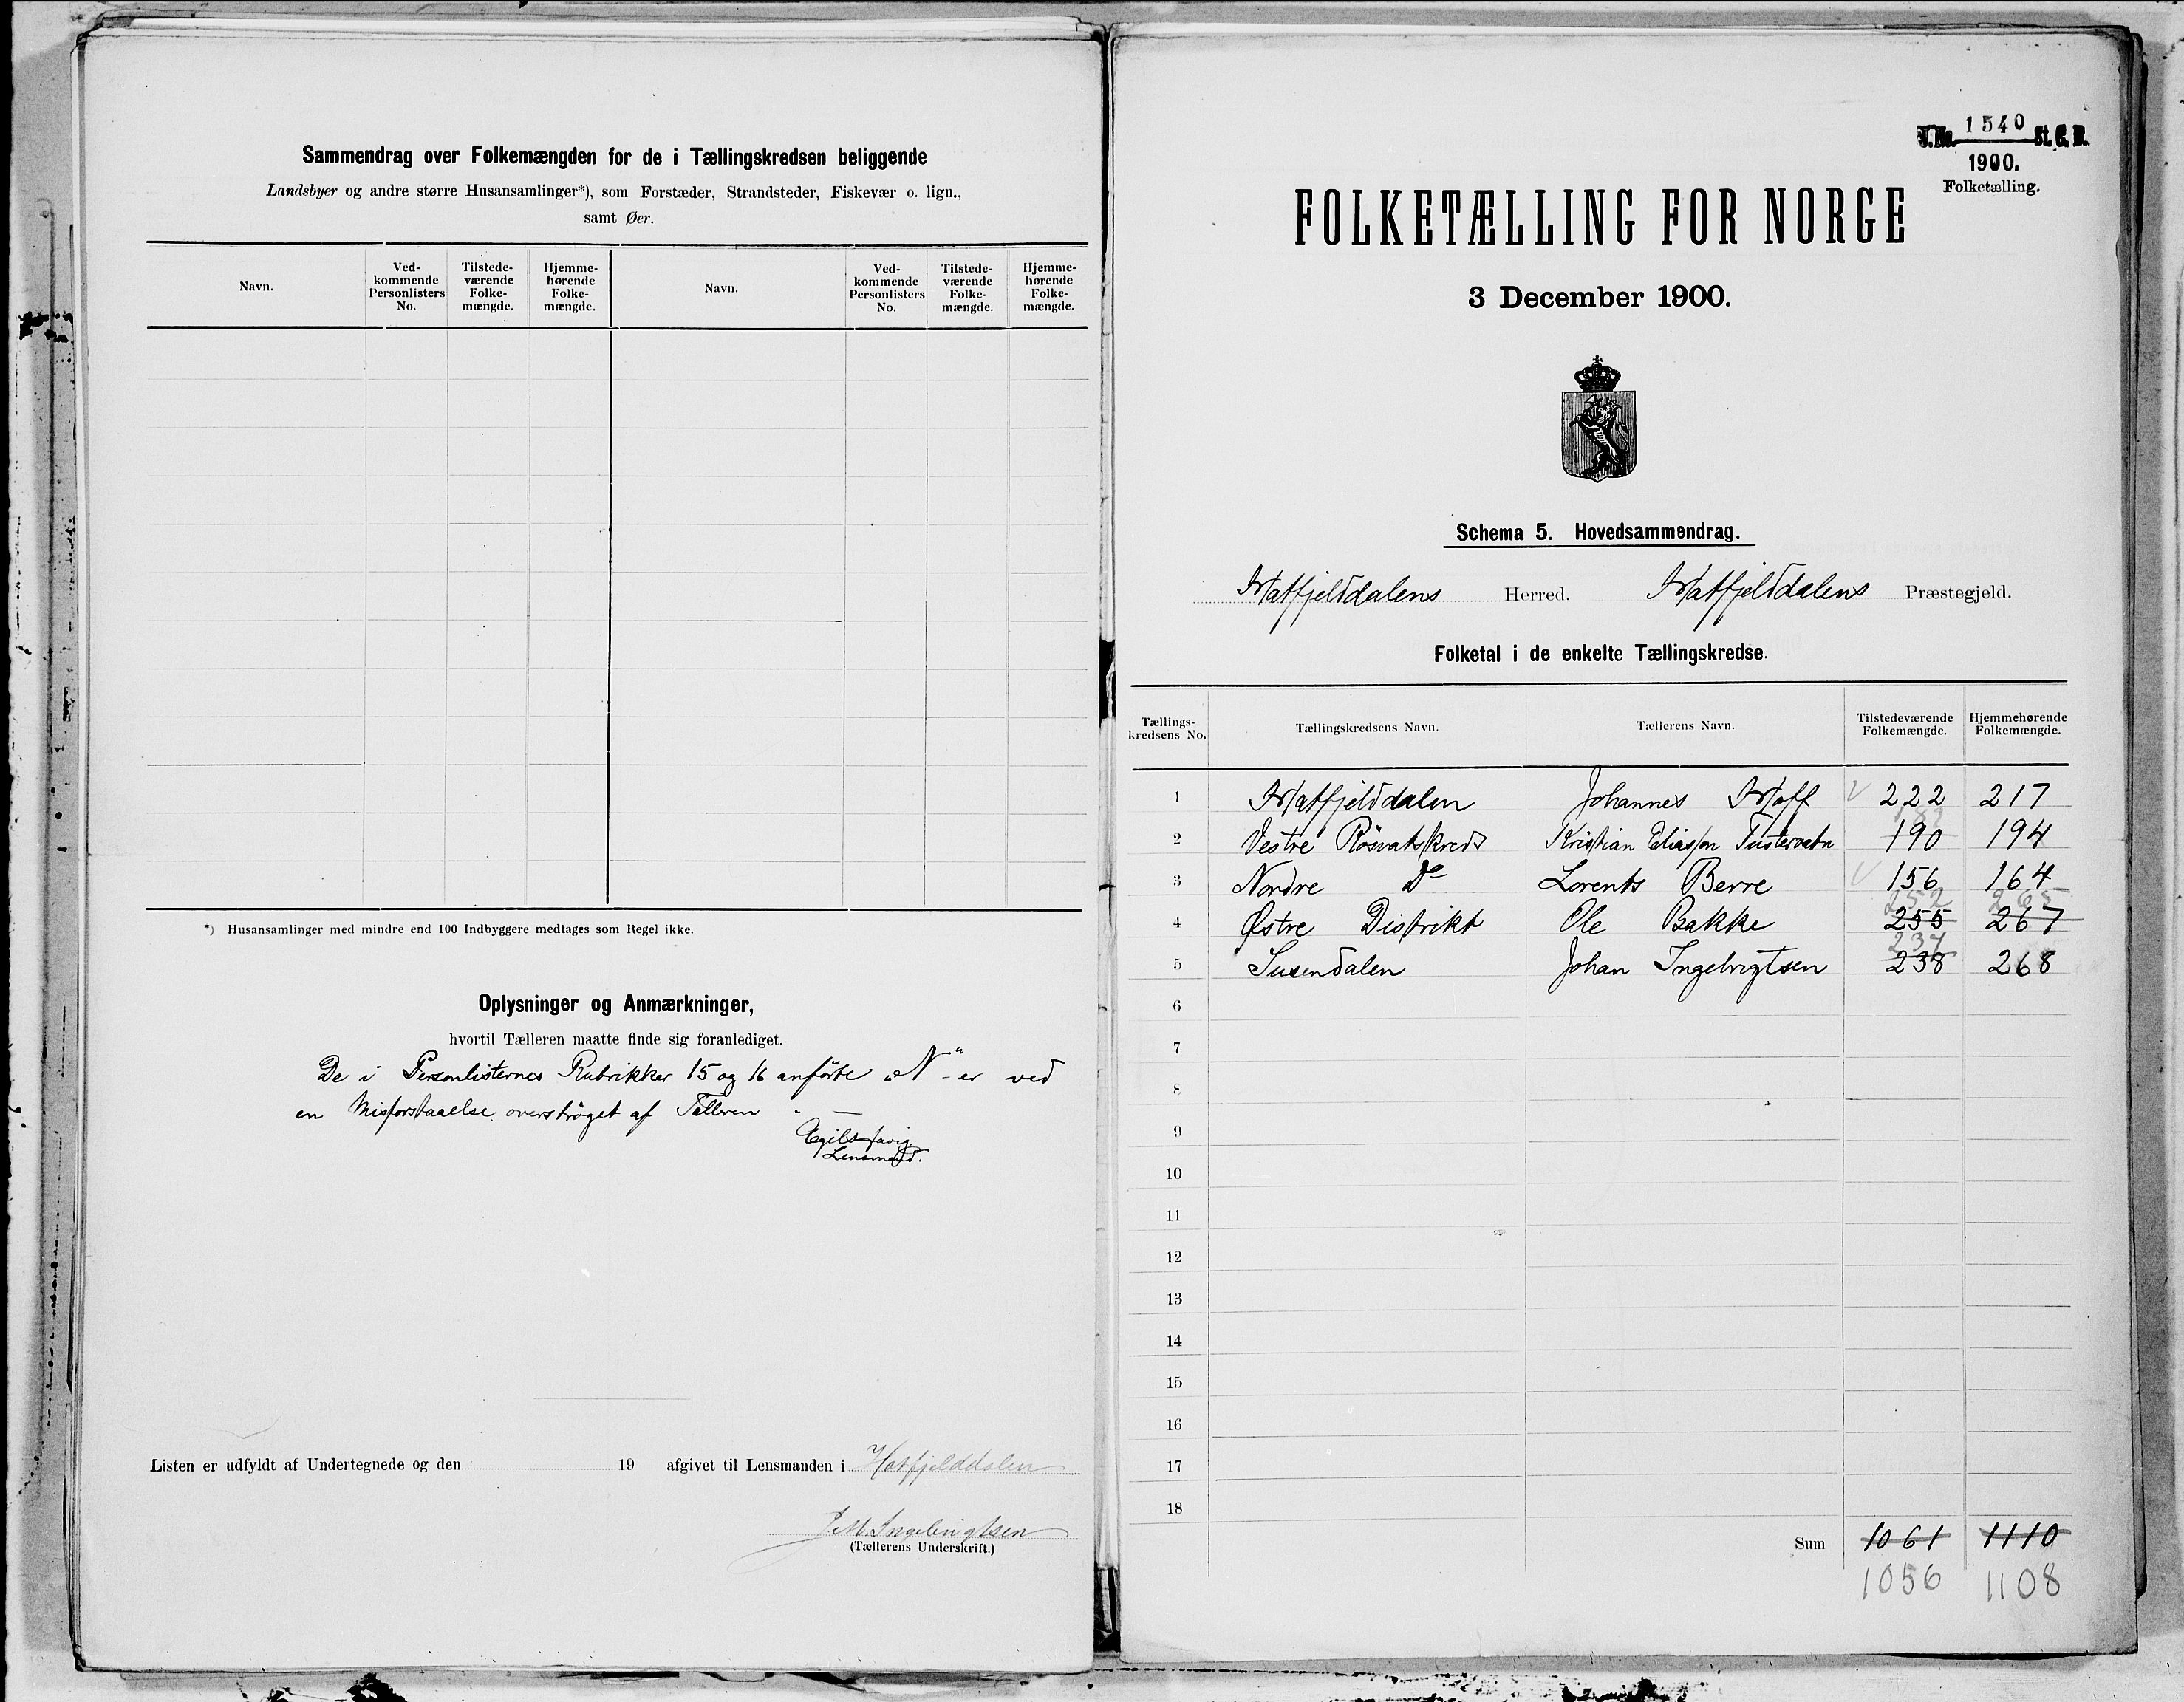 Sammendrag over Folkemængden for de i Tællingskredsen beliggende
Landsbyer og andre større Husansamlinger*), som Forstæder, Strandsteder, Fiskevær o. lign.,
samt Øer.
Navn. Ved-kommende Personlisters No. Tilstede-værende Folke-mængde. Hjemme-hørende Folke-mængde. Navn. Ved-kommende Personlisters No. Tilstede-værende Folke-mængde. Hjemme-hørende Folke-mængde.
*) Husansamlinger med mindre end 100 Indbyggere medtages som Regel ikke.
Oplysninger og Anmærkninger,
hvortil Tælleren maatte finde sig foranlediget.
De i Personlisternes Rubrikker 15 og 16 anførte „N“-er ved
en Misforstaaelse overstrøget af Tælleren
Lensmand.
Listen er udfyldt af Undertegnede og den 19 afgivet til Lensmanden i Hatfjelddalen
J. M. Ingebrigtsen
(Tællerens Underskrift.)
J. No. 1540 St. C. B.
1900.
Folketælling.
FOLKETÆLLING FOR NORGE
3 December 1900.
Schema 5. Hovedsammendrag.
Hatfjelddalens Herred. Hatfjelddalens Præstegjeld.
Folketal i de enkelte Tællingskredse.
Tællings-kredsens No. Tællingskredsens Navn. Tællerens Navn. Tilstedeværende Folkemængde. Hjemmehørende Folkemængde.
1 Hatfjelddalen Johannes Hoff 222 217
2 Vestre Røsvatskreds Kristian Eliasson Tustervatn 190 194
3 Nordre Do Lorents Berre 156 164
252 265
4 Østre Distrikt Ole Bakke 255 267
237
5 Susendalen Johan Ingebrigtsen 238 268
6
7
8
9
10
11
12
13
14
15
16
17
18
Sum 1061 1110
1056 1108